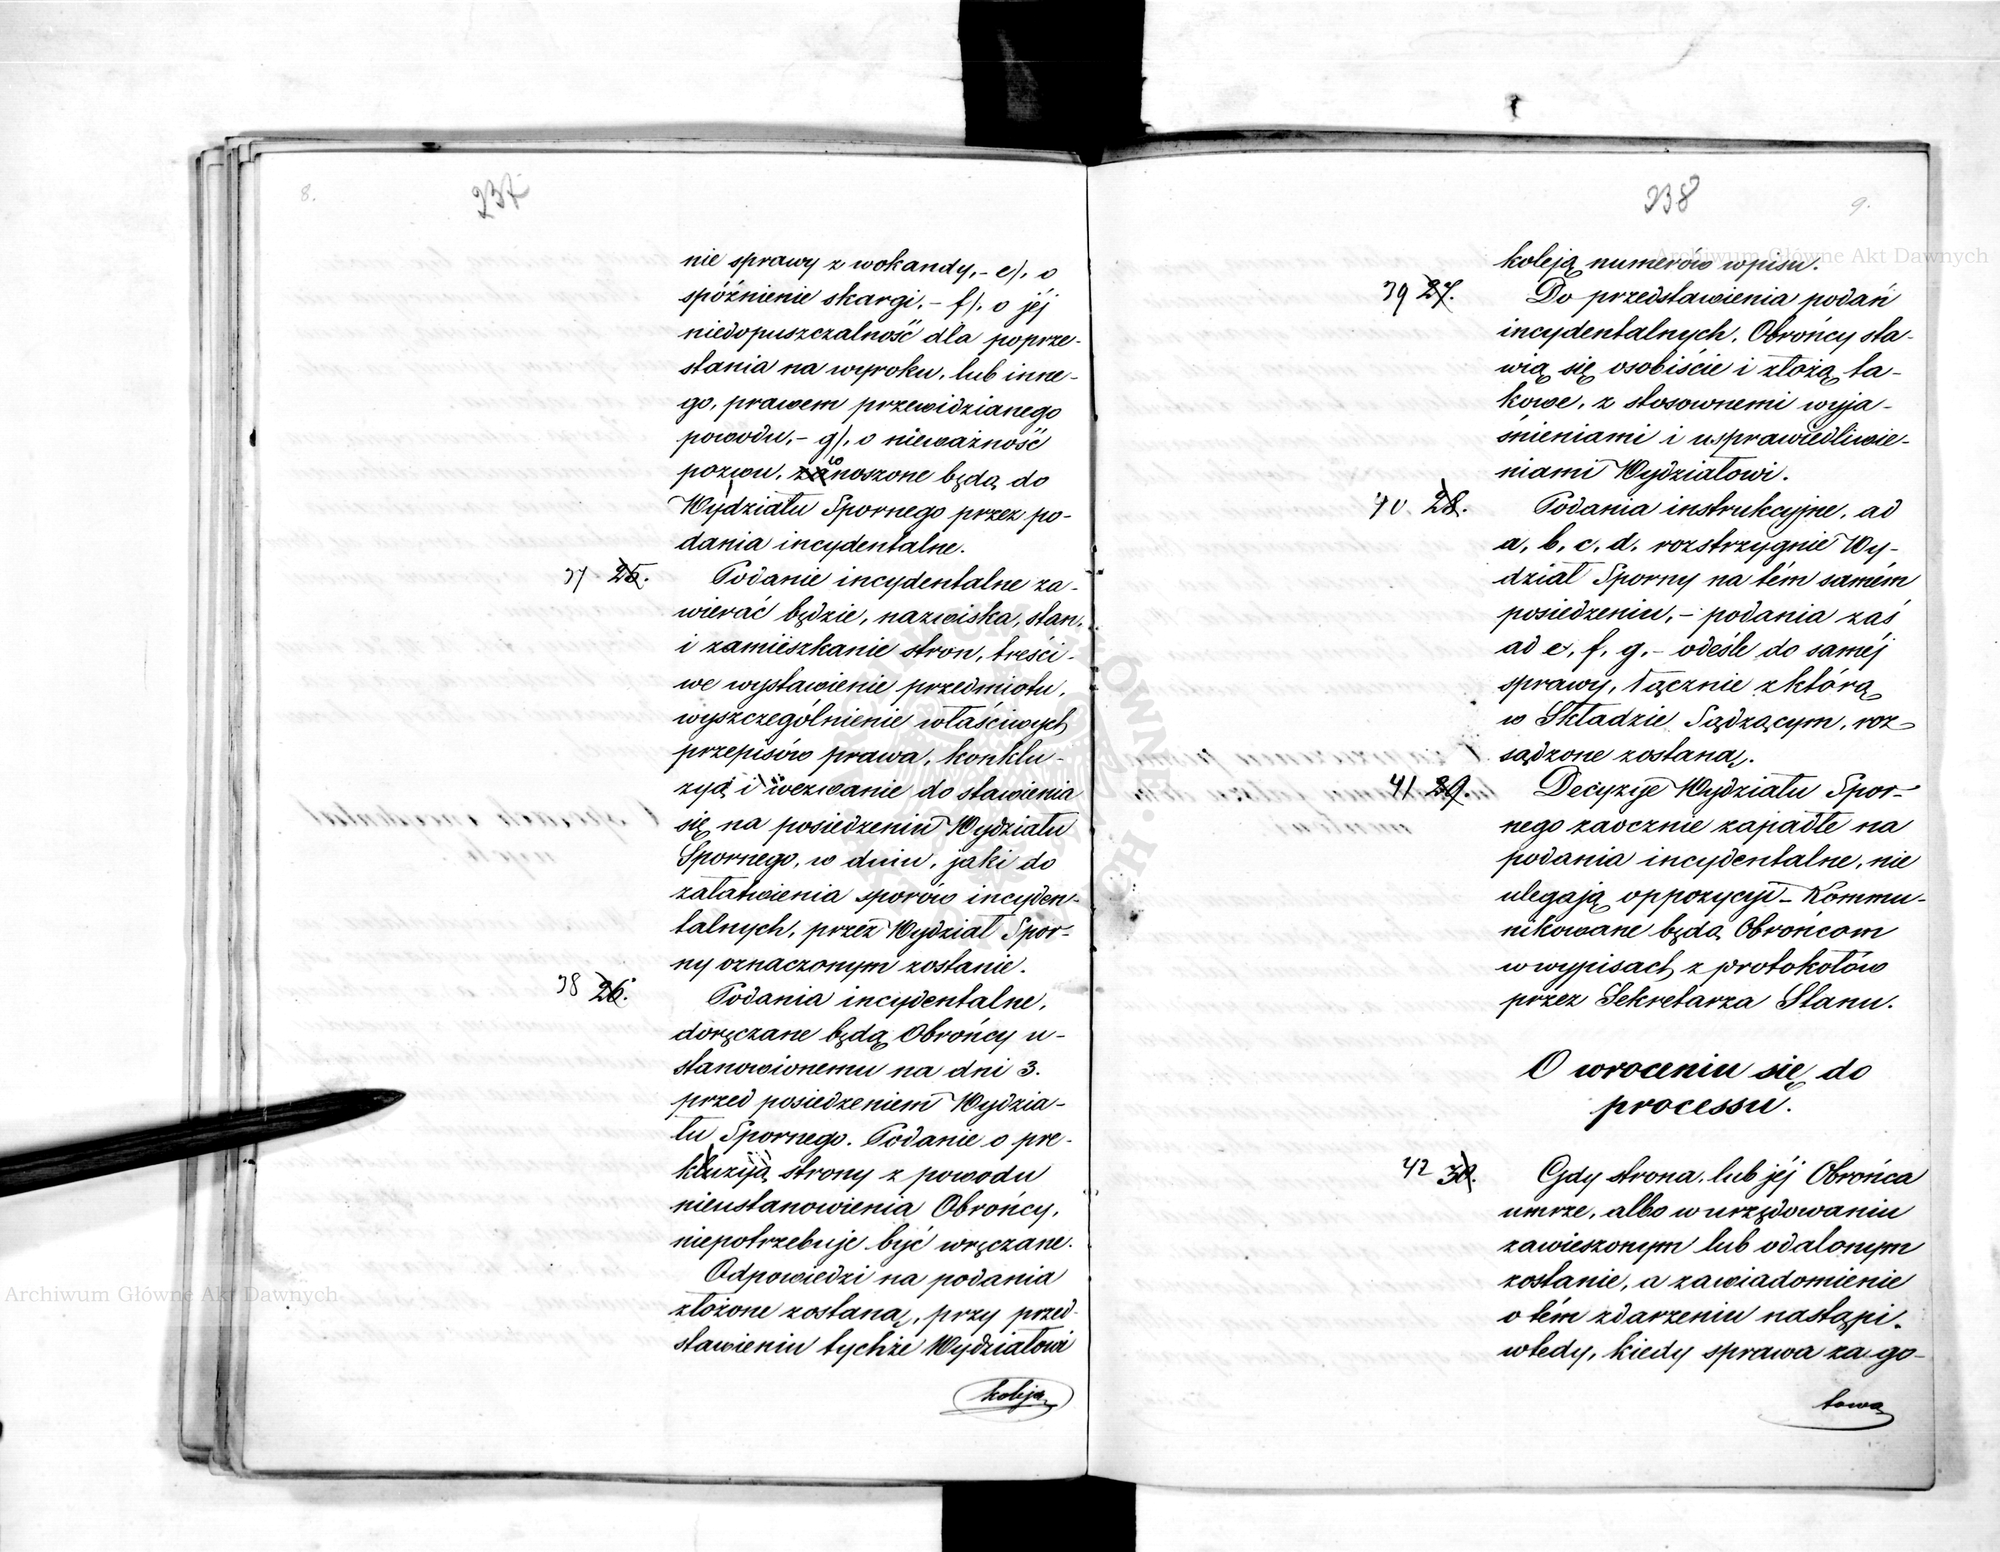 8.
237
nie sprawy z wokandy,- e), o
spóźnienie skargi,- f), o jéj
niedopuszczalność dla poprze-
stania na wyroku, lub inne-
go, prawem przewidzianego
powodu,- g), o nieważność
pozwu, wnoszone będą do
Wydziału Spornego przez po-
dania incydentalne.
37 25. Podanie incydentalne za-
wierać będzie, nazwiska, stan,
i zamieszkanie stron, treści-
we wystawienie przedmiotu,
wyszczególnienie właściwych
przepisów prawa, konklu-
zyą i wezwanie do stawienia
się na posiedzeniu Wydziału
Spornego, w dniu, jaki do
załatwienia sporów incyden-
talnych, przez Wydział Spor-
ny oznaczonym zostanie.
38 26. Podania incydentalne,
doręczane będą Obrońcy u-
stanowionemu na dni 3.
przed posiedzeniem Wydzia-
łu Spornego. Podanie o pre-
kluzyą strony z powodu
nieustanowienia Obrońcy,
niepotrzebuje być wręczane.
Odpowiedzi na podania
złożone zostaną, przy przed-
stawieniu tychże Wydziałowi
koleją
238
9.
koleją numerów wpisu.
39 27. Do przedstawienia podań
incydentalnych, Obrońcy sta-
wią się osobiście i złożą ta-
kowe, z stosownemi wyja-
śnieniami i usprawiedliwie-
niami Wydziałowi.
40 28. Podania instrukcyjne, ad
a, b, c, d, rozstrzygnie Wy-
dział Sporny na tém samém
posiedzeniu,- podania zaś
ad e, f, g,- odeśle do saméj
sprawy, łącznie z którą
w Składzie Sądzącym, roz-
sądzone zostaną.
41 29. Decyzye Wydziału Spor-
nego zaocznie zapadłe na
podania incydentalne, nie
ulegają oppozycyi - Kommu-
nikowane będą Obrońcom
w wypisach z protokołów
przez Sekretarza Stanu.
O wroceniu się do
processu.
42 30. Gdy strona, lub jéj Obrońca
umrze, albo w urzędowaniu
zawieszonym lub odalonym
zostanie, a zawiadomienie
o tém zdarzeniu nastąpi,
wtedy, kiedy sprawa za go-
tową
Archiwum Główne Akt Dawnych
Archiwum Główne Akt Dawnych